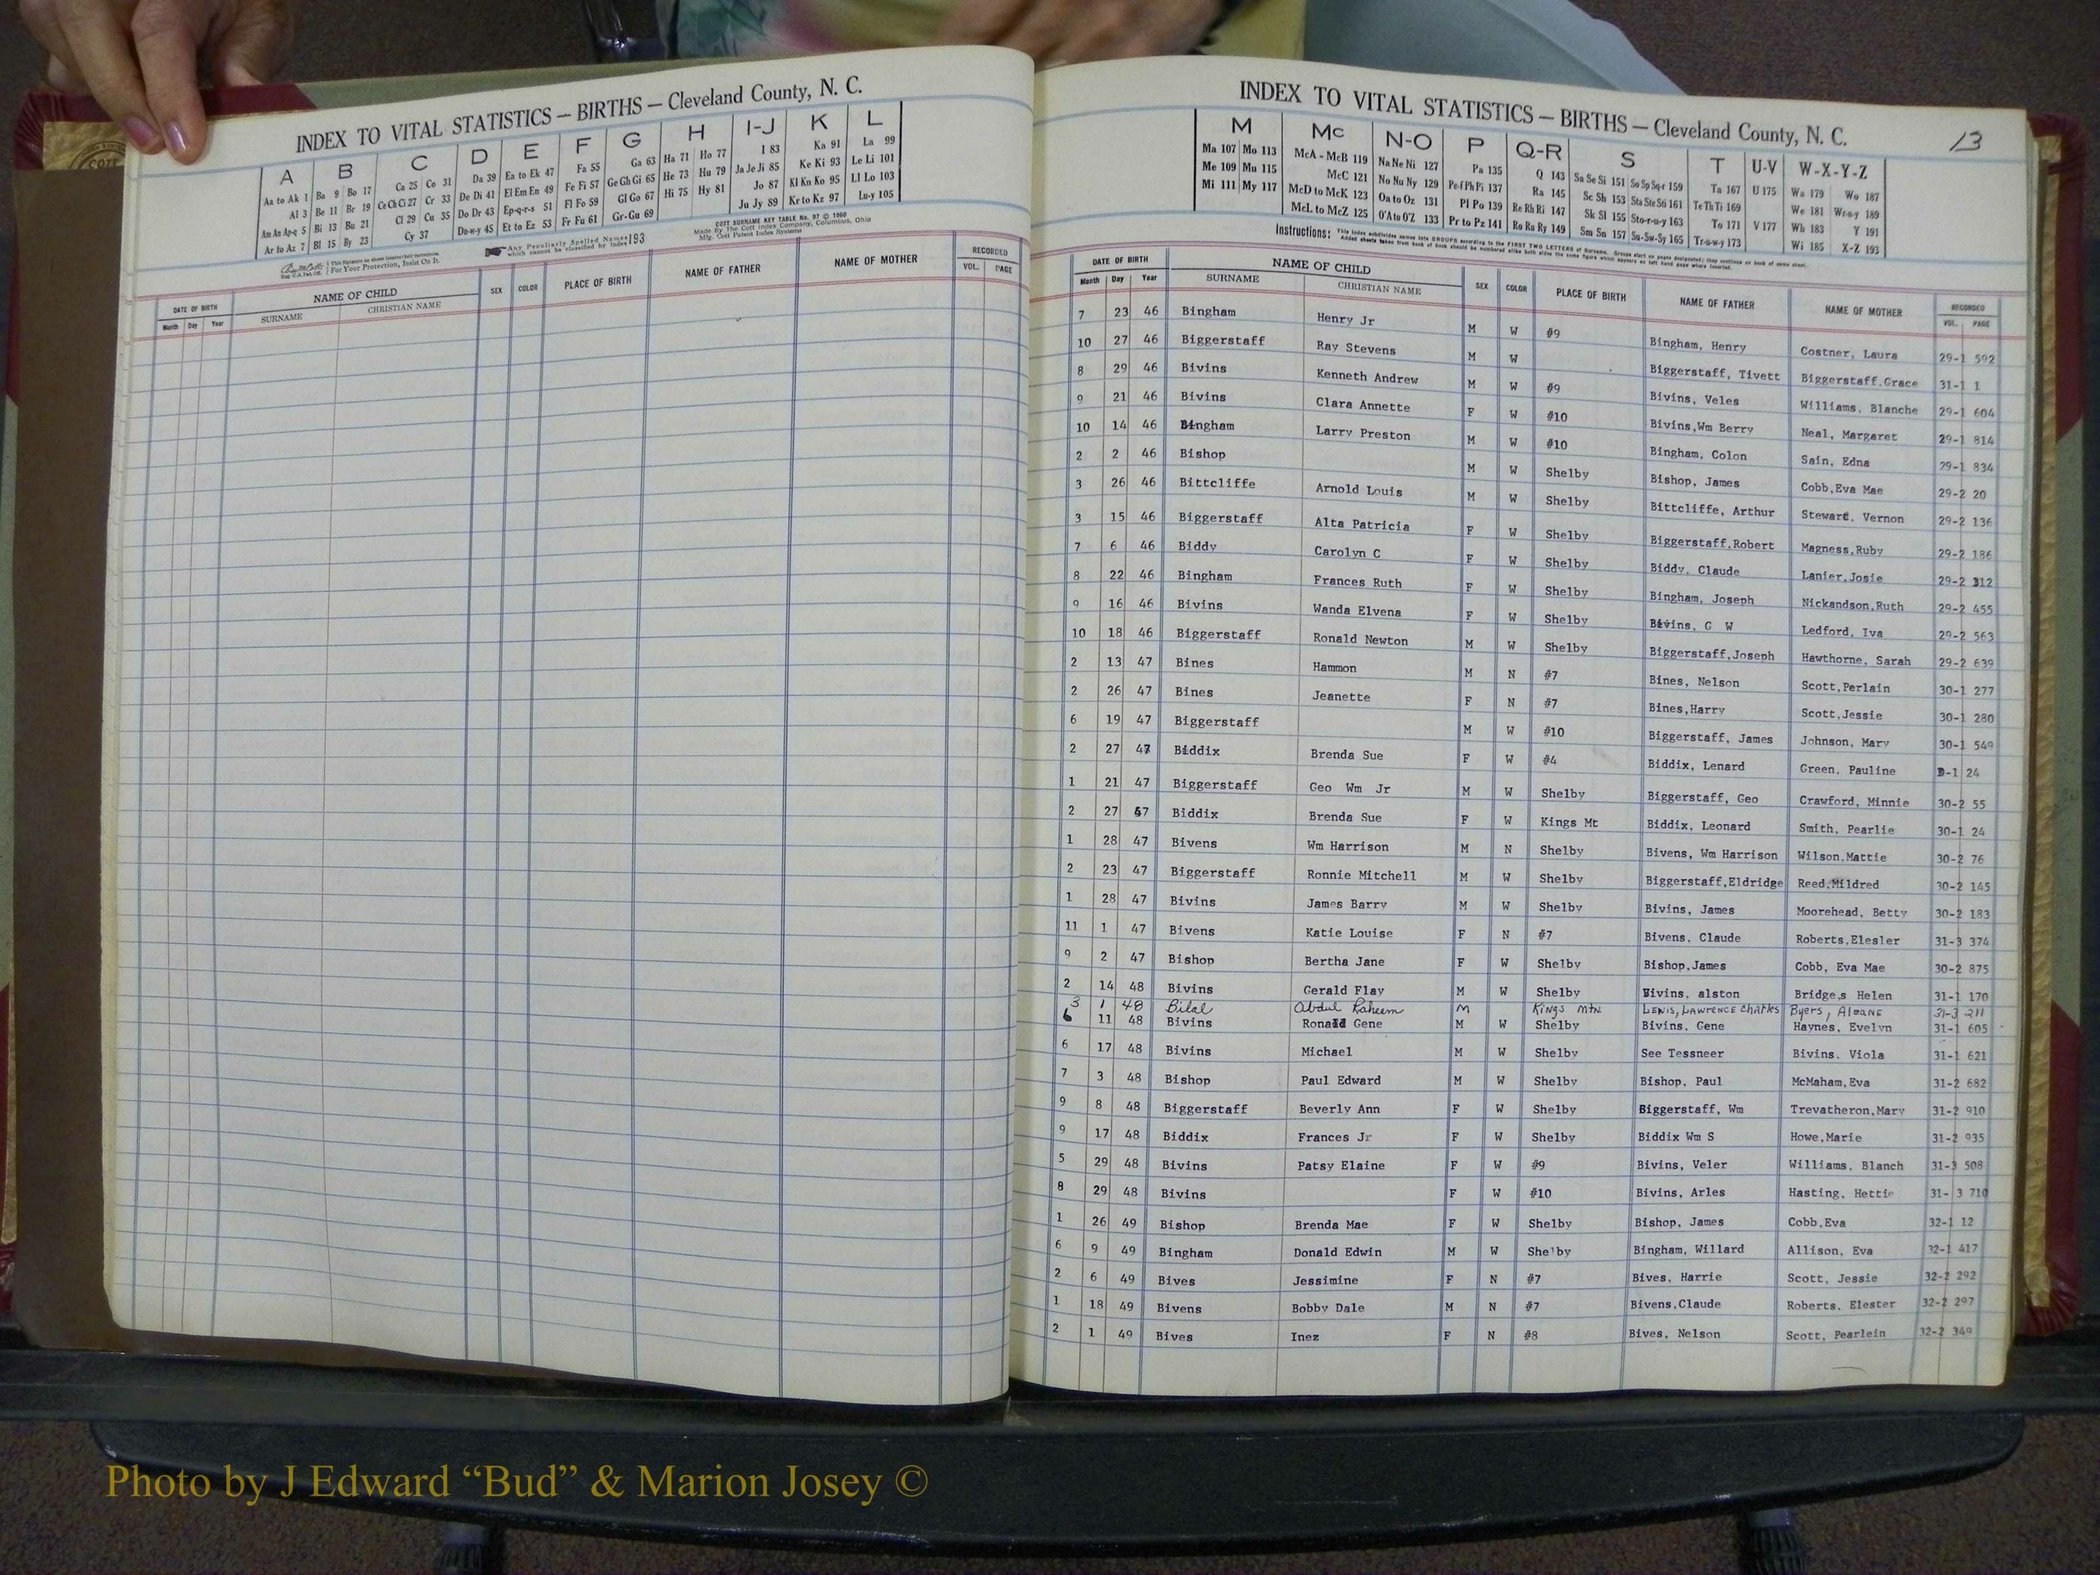 INDEX TO VITAL STATISTICS — BIRTHS — Cleveland County, N. C.
A B C D E F G H I-J K L
Aa to Ak 1 Ba 9 Bo 17 Ca 25 Co 31 Da 39 Ea to Ek 47 Fa 55 Ga 63 Ha 71 Ho 77 I 83 Ka 91 La 99
Al 3 Be 11 Br 19 Ce Ch Ci 27 Cr 33 De Di 41 El Em En 49 Fe Fi 57 Ge Gh Gi 65 He 73 Hu 79 Ja Je Ji 85 Ke Ki 93 Le Li 101
Am An Ap-q 5 Bi 13 Bu 21 Cl 29 Cu 35 Do Dr 43 Ep-q-r-s 51 Fl Fo 59 Gl Go 67 Hi 75 Hy 81 Jo 87 Kl Kn Ko 95 Ll Lo 103
Ar to Az 7 Bl 15 By 23 Cy 37 Du-w-y 45 Et to Ez 53 Fr Fu 61 Gr-Gu 69 Ju Jy 89 Kr to Kz 97 Lu-y 105
For Your Protection, Insist On It.
Any Peculiarly Spelled Names which cannot be classified by index 193
COTT SURNAME KEY TABLE No. 97 © 1960
Made By The Cott Index Company, Columbus, Ohio
Mfg. Cott Patent Index Systems
DATE OF BIRTH NAME OF CHILD SEX COLOR PLACE OF BIRTH NAME OF FATHER NAME OF MOTHER RECORDED
Month Day Year SURNAME CHRISTIAN NAME VOL. PAGE
INDEX TO VITAL STATISTICS — BIRTHS — Cleveland County, N. C.
13
M Mc N-O P Q-R S T U-V W-X-Y-Z
Ma 107 Mo 113 McA - McB 119 Na Ne Ni 127 Pa 135 Q 143 Sa Se Si 151 So Sp Sq-r 159 Ta 167 U 175 Wa 179 Wo 187
Me 109 Mu 115 McC 121 No Nu Ny 129 Pe-f Ph Pi 137 Ra 145 Sc Sh 153 Sta Ste Sti 161 Te Th Ti 169 We 181 Wr-u-y 189
Mi 111 My 117 McD to McK 123 Oa to Oz 131 Pl Po 139 Re Rh Ri 147 Sk Sl 155 Sto-r-u-y 163 To 171 V 177 Wh 183 Y 191
McL to McZ 125 O'A to O'Z 133 Pr to Pz 141 Ro Ru Ry 149 Sm Sn 157 Su-Sw-Sy 165 Tr-u-w-y 173 Wi 185 X-Z 193
Instructions:
DATE OF BIRTH NAME OF CHILD SEX COLOR PLACE OF BIRTH NAME OF FATHER NAME OF MOTHER RECORDED
Month Day Year SURNAME CHRISTIAN NAME VOL. PAGE
7 23 46 Bingham Henry Jr M W #9 Bingham, Henry Costner, Laura 29-1 592
10 27 46 Biggerstaff Ray Stevens M W Biggerstaff, Tivett Biggerstaff,Grace 31-1 1
8 29 46 Bivins Kenneth Andrew M W #9 Bivins, Veles Williams, Blanche 29-1 604
9 21 46 Bivins Clara Annette F W #10 Bivins,Wm Berry Neal, Margaret 29-1 814
10 14 46 Bingham Larry Preston M W #10 Bingham, Colon Sain, Edna 29-1 834
2 2 46 Bishop M W Shelby Bishop, James Cobb,Eva Mae 29-2 20
3 26 46 Bittcliffe Arnold Louis M W Shelby Bittcliffe, Arthur Steward, Vernon 29-2 136
3 15 46 Biggerstaff Alta Patricia F W Shelby Biggerstaff,Robert Magness,Ruby 29-2 186
7 6 46 Biddy Carolyn C F W Shelby Biddy, Claude Lanier,Josie 29-2 312
8 22 46 Bingham Frances Ruth F W Shelby Bingham, Joseph Nickandson,Ruth 29-2 455
9 16 46 Bivins Wanda Elvena F W Shelby Bivins, G W Ledford, Iva 29-2 563
10 18 46 Biggerstaff Ronald Newton M W Shelby Biggerstaff,Joseph Hawthorne, Sarah 29-2 639
2 13 47 Bines Hammon M N #7 Bines, Nelson Scott,Perlain 30-1 277
2 26 47 Bines Jeanette F N #7 Bines,Harry Scott,Jessie 30-1 280
6 19 47 Biggerstaff M W #10 Biggerstaff, James Johnson, Mary 30-1 549
2 27 47 Biddix Brenda Sue F W #4 Biddix, Lenard Green, Pauline -1 24
1 21 47 Biggerstaff Geo Wm Jr M W Shelby Biggerstaff, Geo Crawford, Minnie 30-2 55
2 27 47 Biddix Brenda Sue F W Kings Mt Biddix, Leonard Smith, Pearlie 30-1 24
1 28 47 Bivens Wm Harrison M N Shelby Bivens, Wm Harrison Wilson,Mattie 30-2 76
2 23 47 Biggerstaff Ronnie Mitchell M W Shelby Biggerstaff,Eldridge Reed,Mildred 30-2 145
1 28 47 Bivins James Barry M W Shelby Bivins, James Moorehead, Betty 30-2 183
11 1 47 Bivens Katie Louise F N #7 Bivens, Claude Roberts,Elesler 31-3 374
9 2 47 Bishop Bertha Jane F W Shelby Bishop,James Cobb, Eva Mae 30-2 875
2 14 48 Bivins Gerald Flay M W Shelby Bivins, alston Bridge,s Helen 31-1 170
3 1 48 Bilal Abdul Raheem M Kings Mtn Lewis, Lawrence Charles Byers, Aleane 31-3 211
6 11 48 Bivins Ronald Gene M W Shelby Bivins, Gene Haynes, Evelyn 31-1 605
6 17 48 Bivins Michael M W Shelby See Tessneer Bivins. Viola 31-1 621
7 3 48 Bishop Paul Edward M W Shelby Bishop, Paul McMaham,Eva 31-2 682
9 8 48 Biggerstaff Beverly Ann F W Shelby Biggerstaff, Wm Trevatheron,Mary 31-2 910
9 17 48 Biddix Frances Jr F W Shelby Biddix Wm S Howe,Marie 31-2 935
5 29 48 Bivins Patsy Elaine F W #9 Bivins, Veler Williams, Blanch 31-3 508
8 29 48 Bivins F W #10 Bivins, Arles Hasting, Hettie 31- 3 710
1 26 49 Bishop Brenda Mae F W Shelby Bishop, James Cobb,Eva 32-1 12
6 9 49 Bingham Donald Edwin M W Shelby Bingham, Willard Allison, Eva 32-1 417
2 6 49 Bives Jessimine F N #7 Bives, Harrie Scott, Jessie 32-2 292
1 18 49 Bivens Bobby Dale M N #7 Bivens,Claude Roberts, Elester 32-2 297
2 1 49 Bives Inez F N #8 Bives, Nelson Scott, Pearlein 32-2 349
Photo by J Edward “Bud” & Marion Josey ©